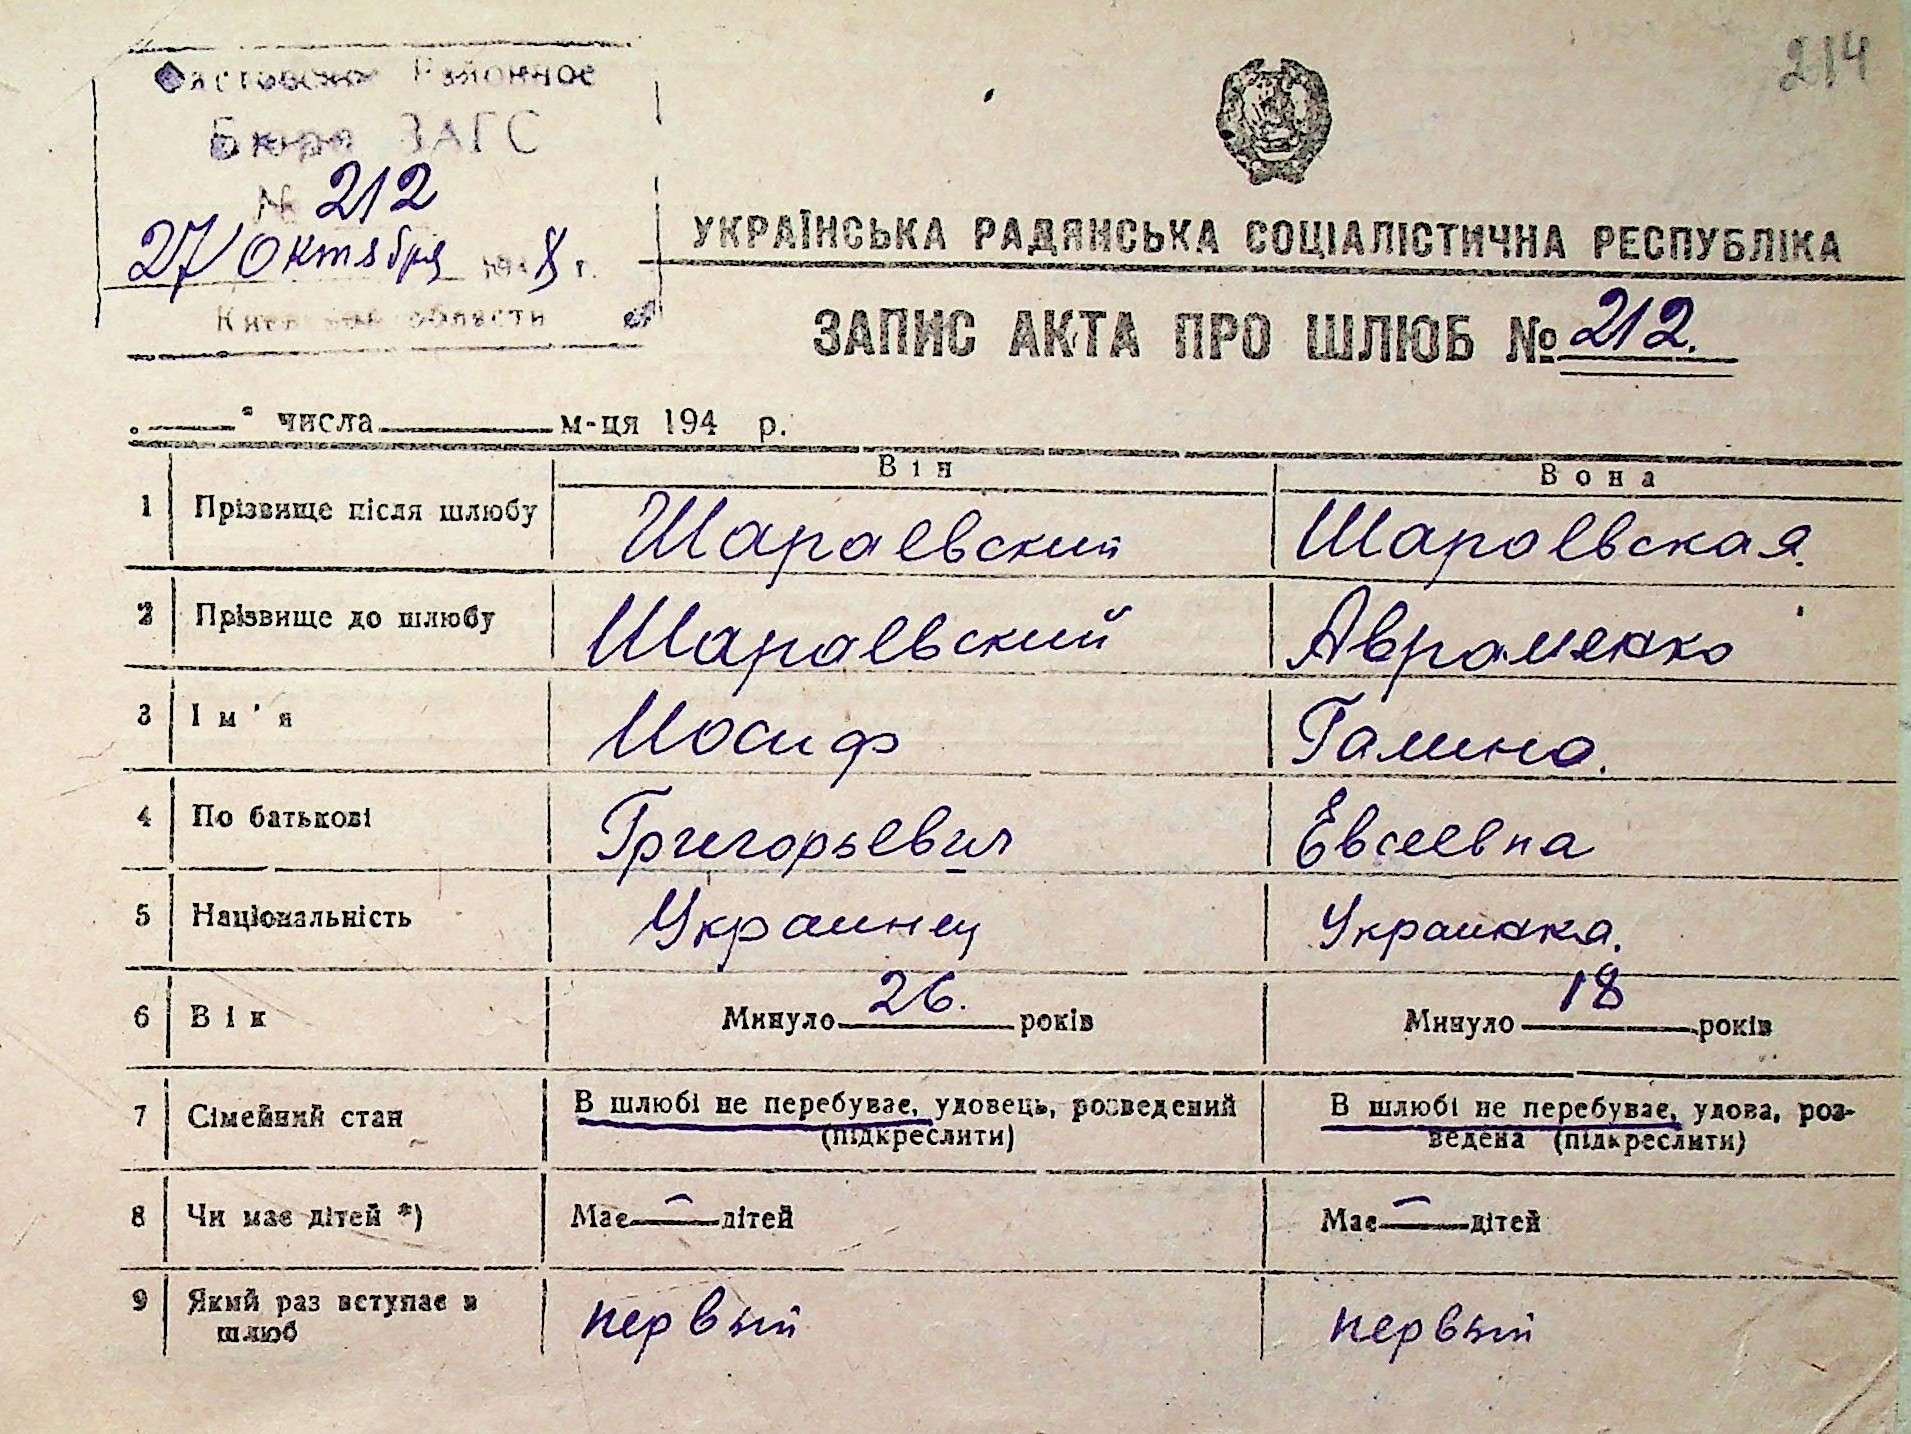 214
Фастовское Районное
Бюро ЗАГС
№ 212
27 Октября 1948 г.
Киевской области
УКРАЇНСЬКА РАДЯНСЬКА СОЦІАЛІСТИЧНА РЕСПУБЛІКА
ЗАПИС АКТА ПРО ШЛЮБ № 212.
" числа м-ця 194 р.
Він Вона
1 Прізвище після шлюбу Шараевский Шараевская.
2 Прізвище до шлюбу Шараевский Авраменко
3 Ім'я Иосиф Галина.
4 По батькові Григорьевич Евсеевна
5 Національність Украинец Украинка.
6 Вік Минуло 26. років Минуло 18 років
7 Сімейний стан В шлюбі не перебуває, удовець, розведений (підкреслити) В шлюбі не перебуває, удова, роз-
ведена (підкреслити)
8 Чи має дітей *) Має — дітей Має — дітей
9 Який раз вступає в шлюб первый первый